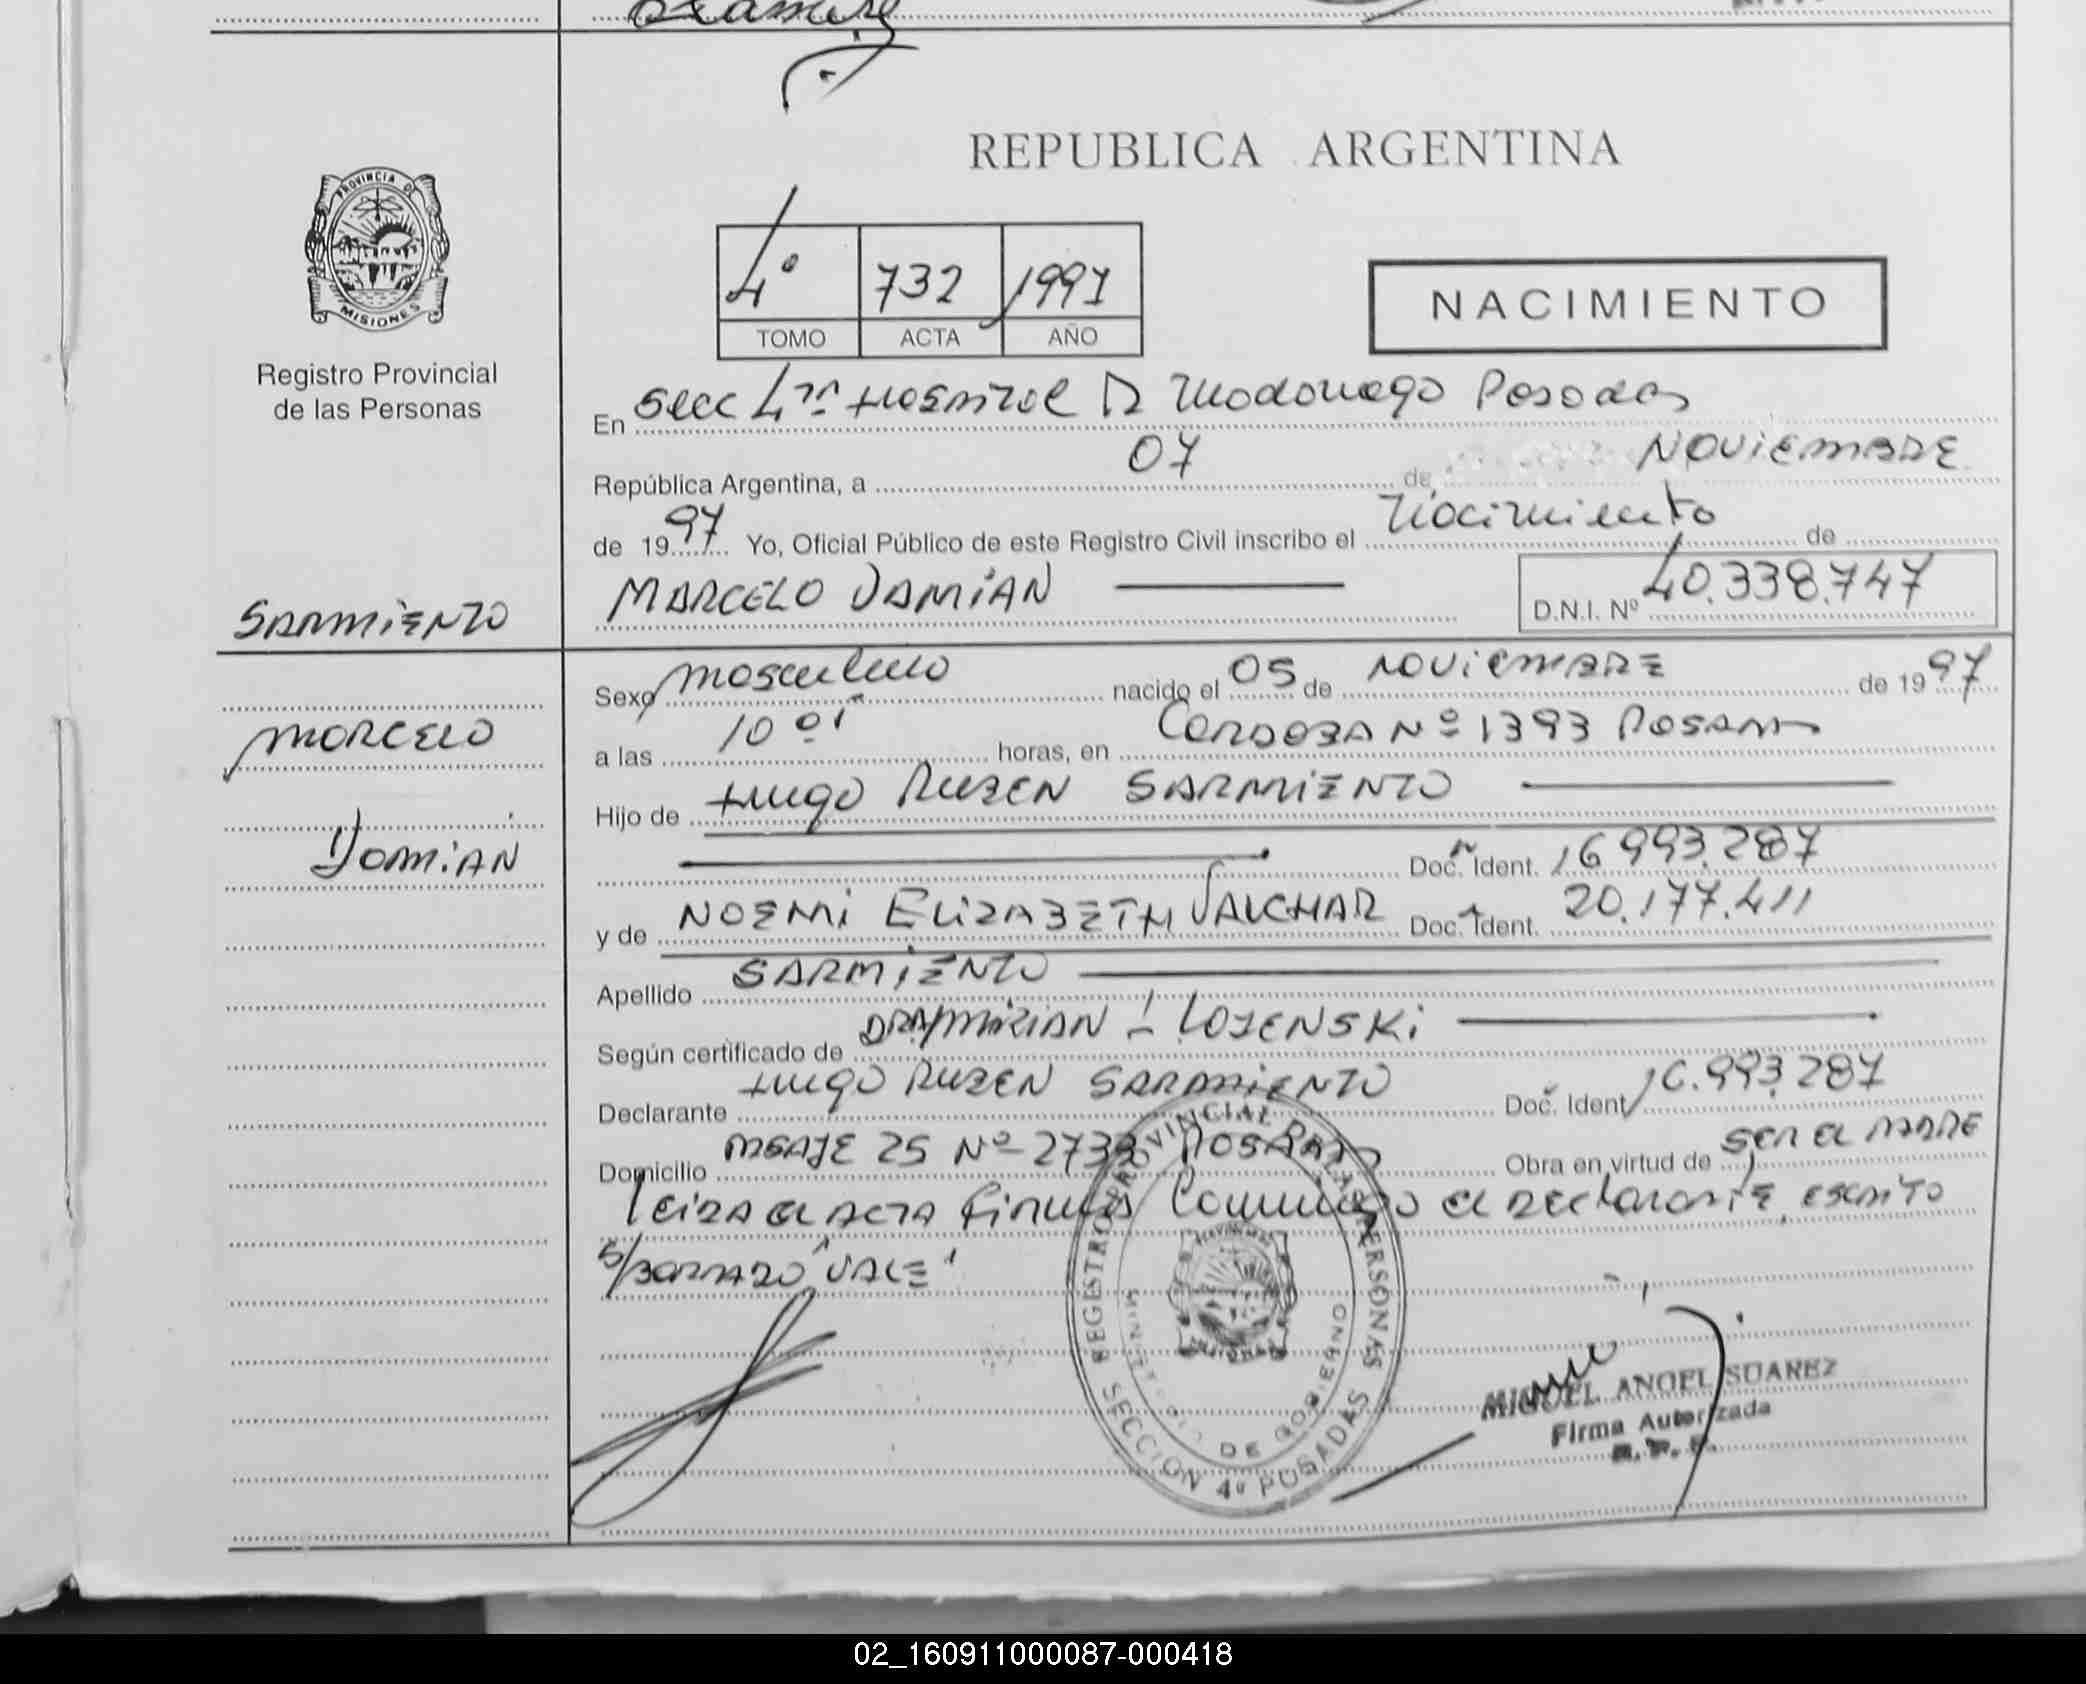 REPUBLICA ARGENTINA
PROVINCIA DE
MISIONES
Registro Provincial
de las Personas
4º 732 1997
TOMO ACTA AÑO
NACIMIENTO
En Secc 4ta Hospital R Madariaga Posadas
República Argentina, a 07 de NOVIEMBRE
de 1997 Yo, Oficial Público de este Registro Civil inscribo el Nacimiento de
SARMIENTO
MARCELO DAMIÁN
D.N.I. Nº 40.338.747
MARCELO
DAMIÁN
Sexo masculino nacido el 05 de NOVIEMBRE de 1997
a las 10 horas, en CORDOBA Nº 1393 POSADAS
Hijo de HUGO RUBEN SARMIENTO
Doc. Ident. 16.993.287
y de NOEMI ELIZABETH Doc. Ident. 20.177.411
Apellido SARMIENTO
Según certificado de LOJENSKI
Declarante HUGO RUBEN SARMIENTO Doc. Ident 16.993.287
Domicilio PASAJE 25 Nº POSADAS Obra en virtud de SER EL PADRE
Leida el ACTA firma Conmigo el DECLARANTE, ESCRITO
S/BORRADO "VALE"
REGISTRO PROVINCIAL DE LAS PERSONAS
MINISTERIO DE GOBIERNO
SECCION 4º POSADAS
MIGUEL ANGEL SUAREZ
Firma Autorizada
R. P. P.
02_160911000087-000418